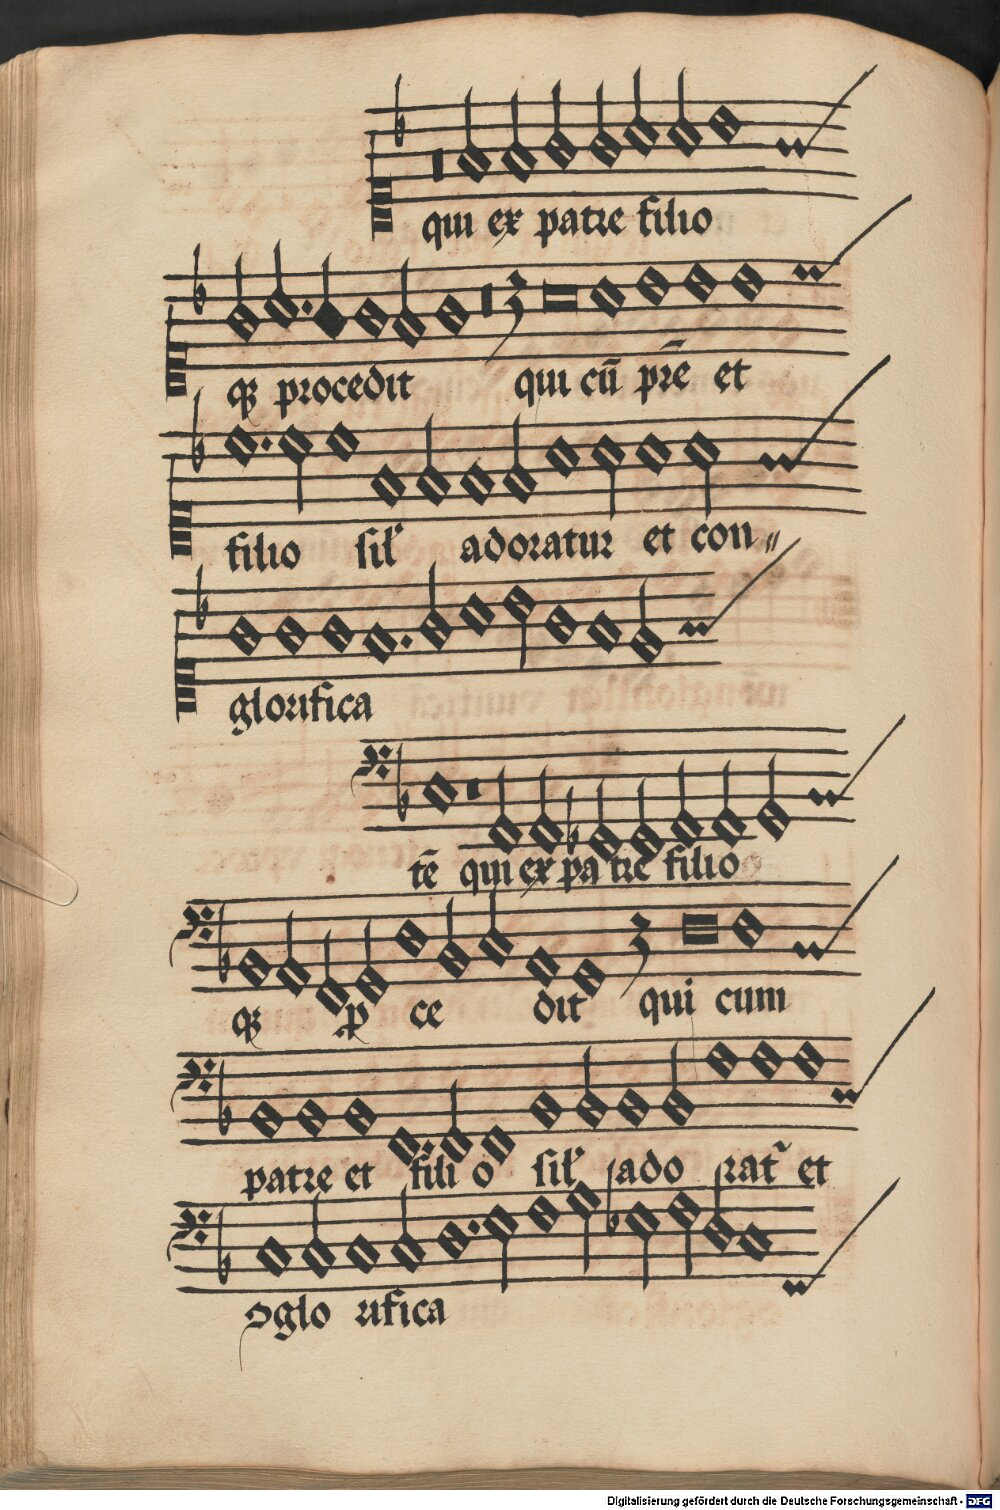 qui ex patre filio
qꝫ procedit qui cū pr̄e et
filio sil̓ adoratur et con〃
glorifica
tē qui ex pa tre filio
qꝫ ꝓ ce dit qui cum
patre et fili o sil̓ ado rat᷑ et
ꝯglo rifica
Digitalisierung gefördert durch die Deutsche Forschungsgemeinschaft - DFG